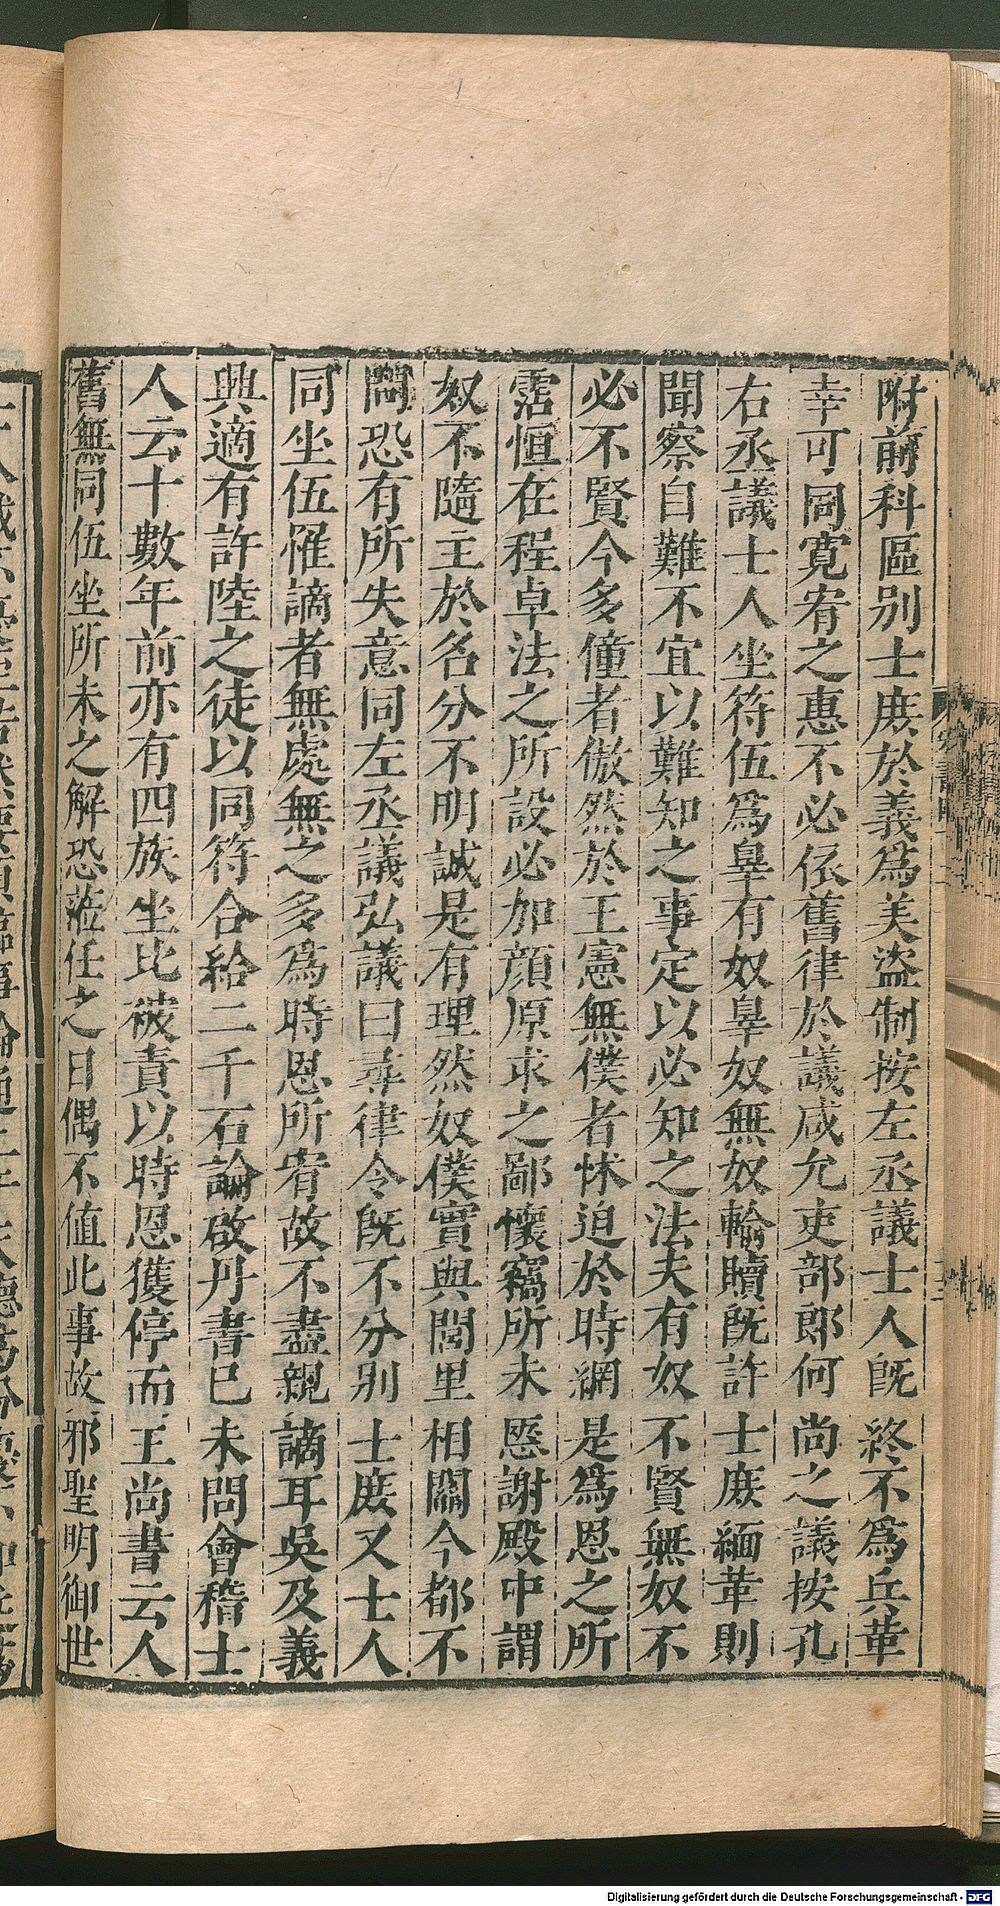 附前科區别士庶於義爲美盜制按左丞議士人旣終不爲兵革
幸可同寬宥之惠不必依舊律於議咸允吏部郎何尚之議按孔
右丞議士人坐符伍爲辠有奴辠奴無奴輸贖旣許士庶緬革則
聞察自難不宜以難知之事定以必知之法夫有奴不賢無奴不
必不賢今多僮者傲然於王憲無僕者怵迫於時網是爲恩之所
霑恒在程卓法之所設必加顔原求之鄙懷竊所未愜謝殿中謂
奴不隨主於名分不明誠是有理然奴僕實與閭里相關今都不
問恐有所失意同左丞議弘議曰尋律令旣不分别士庶又士人
同坐伍罹謫者無處無之多爲時恩所宥故不盡親謫耳吳及義
興適有許陸之徒以同符合給二千石論啟丹書已未問會稽士
人云十數年前亦有四族坐比被責以時恩獲停而王尚書云人
舊無同伍坐所未之解恐莅任之日偶不值此事故邪聖明御世
Digitalisierung gefördert durch die Deutsche Forschungsgemeinschaft - DFG